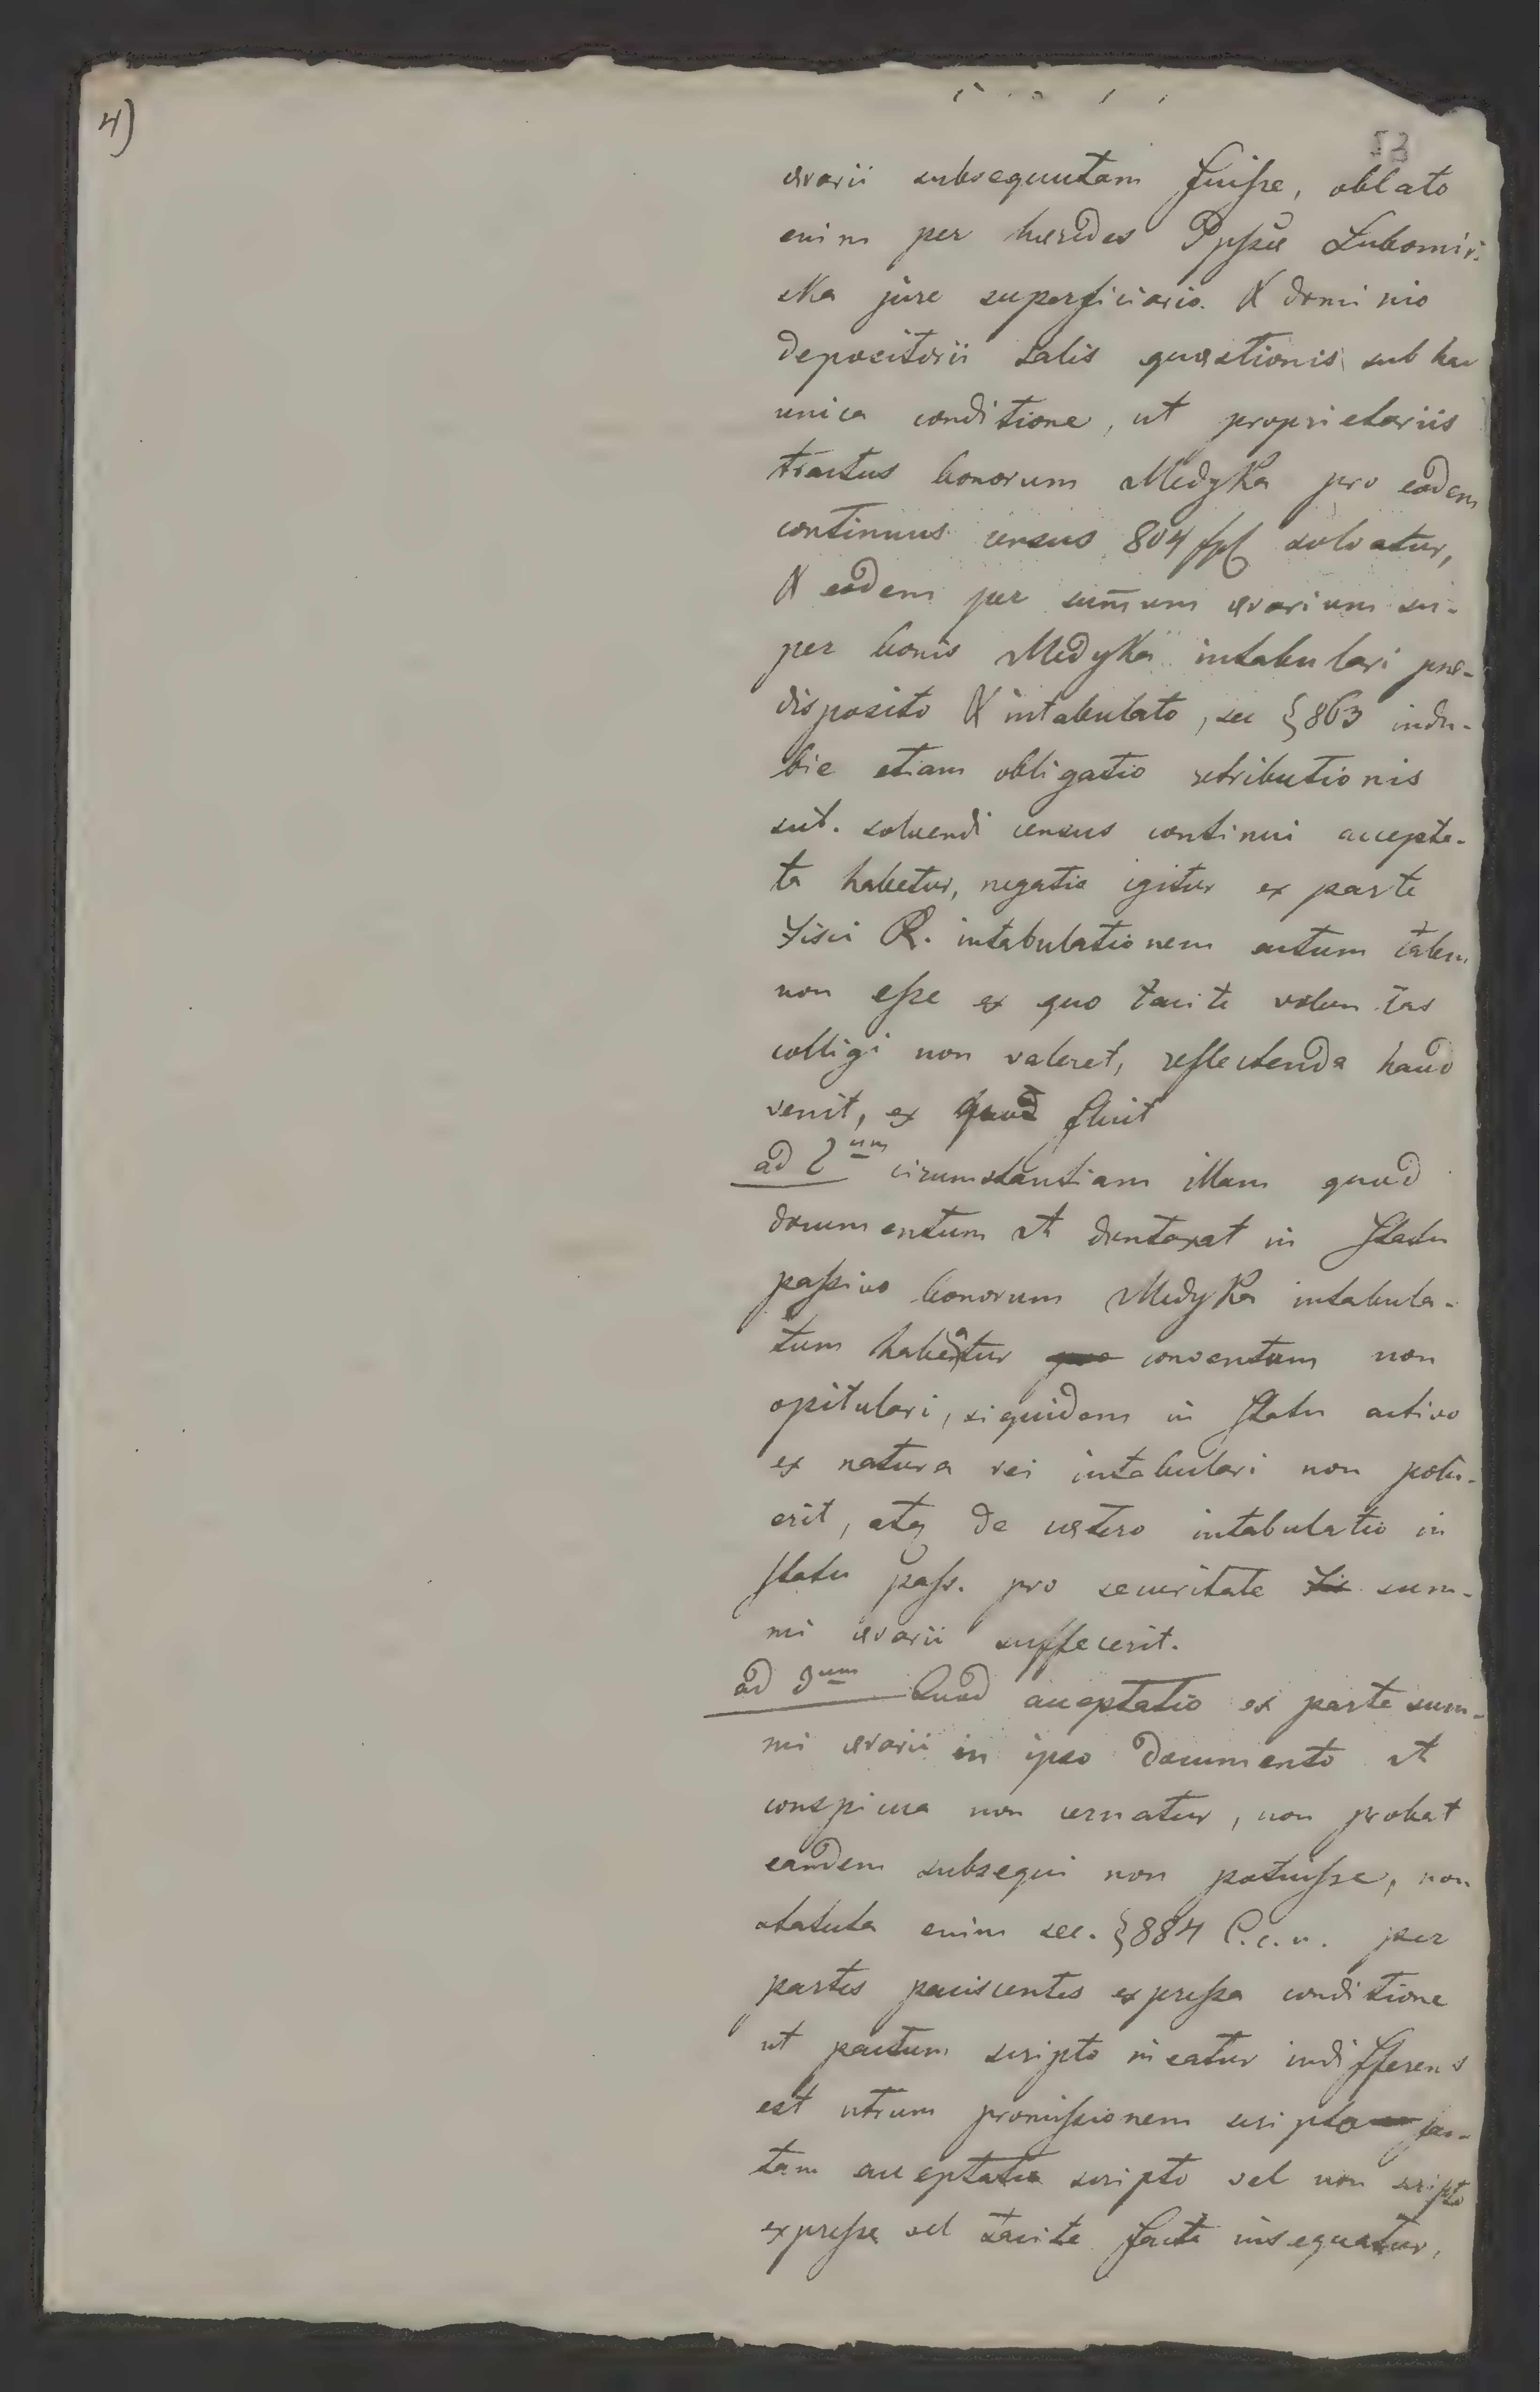 4)
53
ærarii subsequutam fuisse, oblato
enim per hæredes Ppssæ Lubomir-
ska jure superficiario & dominio
depositorii salis quæstionis sub hac
unica conditione, ut proprietariis
tractus bonorum Medyka pro eodem
continuus census 804 fpl solvatur,
& eodem per summum ærarium su-
per bonis Medyka intabulari præ-
disposito & intabulato, sec §863 indu-
bie etiam obligatio retributionis
sut. solvendi census continui accepta-
ta habetur, negatio igitur ex parte
Fisci R. intabulationem actum talem
non esse ex quo tacite voluntas
colligi non valeret, reflectenda haud
venit, ex quod fluit
ad 2um circumstantiam illam quod
documentum A duntaxat in statu
passivo bonorum Medyka intabula-
tum habeatur conventum non
opitulari, siquidem in statu activo
ex natura rei intabulari non potu-
erit, atq de cætero intabulatio in
statu pass. pro securitate Fis sum-
mi ærarii suffecerit.
ad 3um Quod acceptatio ex parte sum-
mi ærarii in ipso documento A
conspicua non cernatur, non probat
eandem subsequi non potuisse, non
statuta enim sec. §884 C.c.u. per
partes paciscentes expressa conditione
ut pactum scripto ineatur indifferens
est utrum promissionem scripto fac-
tam acceptatio scripto vel non scripto
expresse vel tacite facta insequatur,